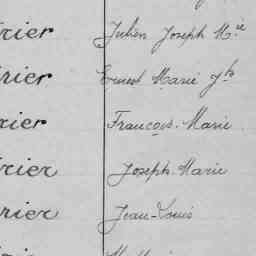 rier Julien Joseph Mie
rier Ernest Marie Jh
rier François-Marie
rier Joseph-Marie
rier Jean-Louis